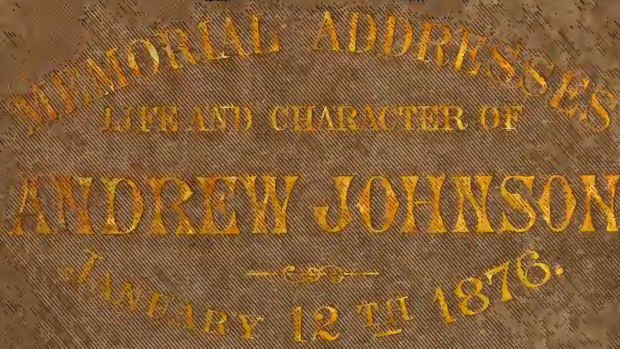 MEMORIAL ADDRESSES
LIFE AND CHARACTER OF
ANDREW JOHNSON
JANUARY 12TH 1876.